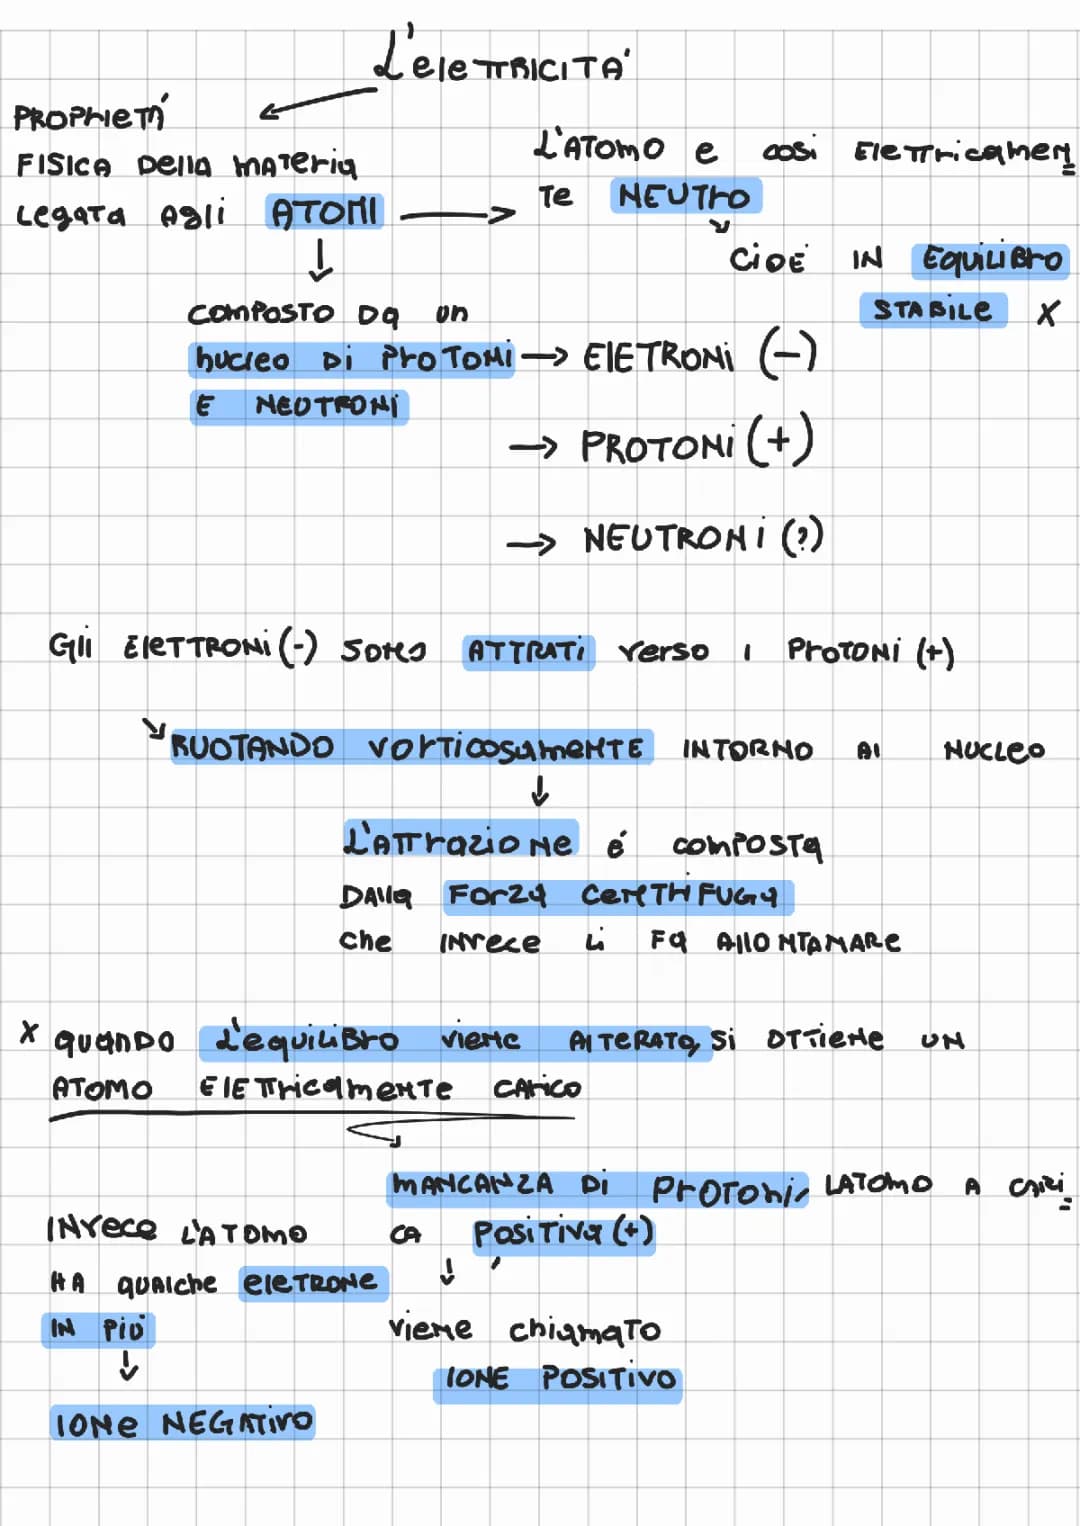 L'elettricità
Proprietà
fisica della materia
legata agli atomi
L'atomo e così elettricamen
te neutro
cioè in equilibro
stabile x
composto da un
nucleo di protoni
e neutroni
eletroni (-)
protoni (+)
neutroni (?)
Gli elettroni (-) sono attrati verso i protoni (+)
ruotando vorticosamente intorno al nucleo
L'attrazione é composta
dalla forza centrifuga
che invece li fa allontanare
x quando l'equilibro viene alterato, si ottiene un
atomo elettricamente carico
mancanza di protoni, latomo a cari
ca positiva (+)
viene chiamato
ione positivo
invece l'atomo
ha qualche eletrone
in più
ione negativo